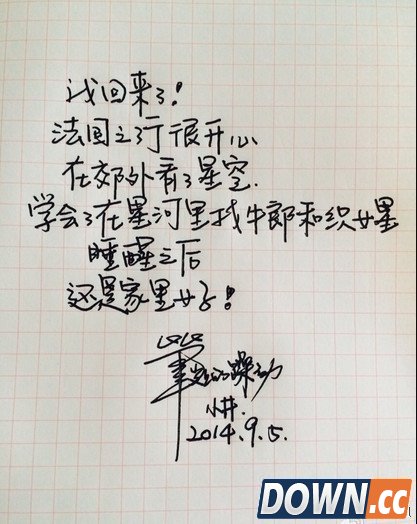 我回来了!
法国之行很开心
在郊外看了星空.
学会了在星河里找牛郎和织女星
睡醒之后
还是家里好!
躁动
小井.
2014.9.5.
DOWN.cc